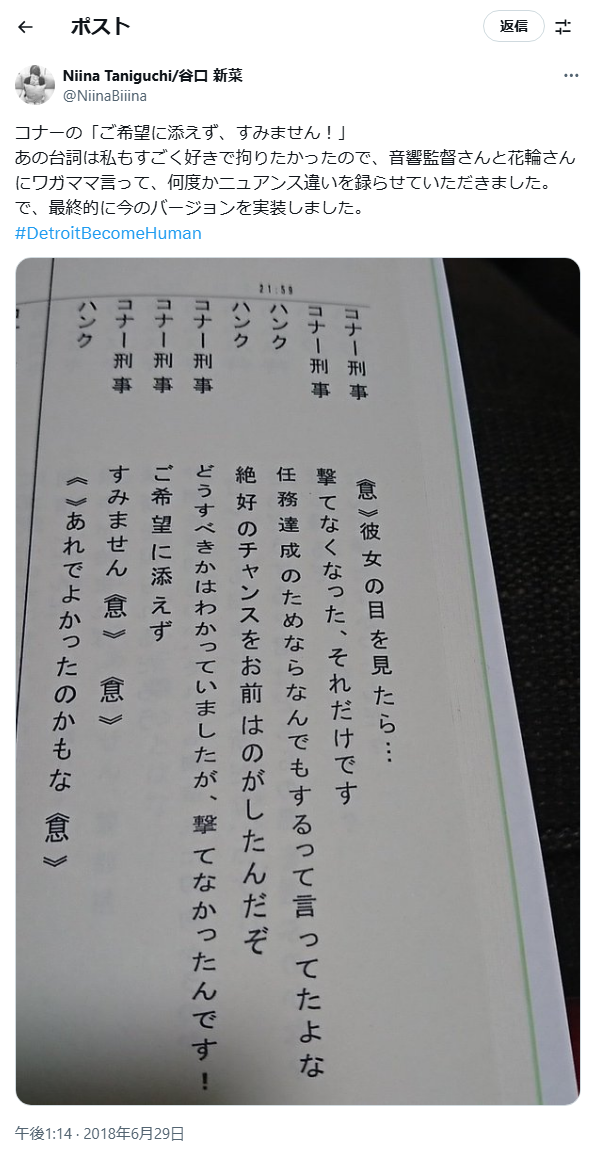 ポスト
返信
Niina Taniguchi/谷口 新菜
@NiinaBiiina
コナーの「ご希望に添えず、すみません！」
あの台詞は私もすごく好きで拘りたかったので、音響監督さんと花輪さん
にワガママ言って、何度かニュアンス違いを録らせていただきました。
で、最終的に今のバージョンを実装しました。
#DetroitBecomeHuman
21:59
コナー刑事 《息》彼女の目を見たら…
コナー刑事 撃てなくなった、それだけです
ハンク 任務達成のためならなんでもするって言ってたよな
ハンク 絶好のチャンスをお前はのがしたんだぞ
コナー刑事 どうすべきかはわかっていましたが、撃てなかったんです！
コナー刑事 ご希望に添えず
コナー刑事 すみません《息》《息》
ハンク 《 》あれでよかったのかもな《息》
午後1:14 · 2018年6月29日